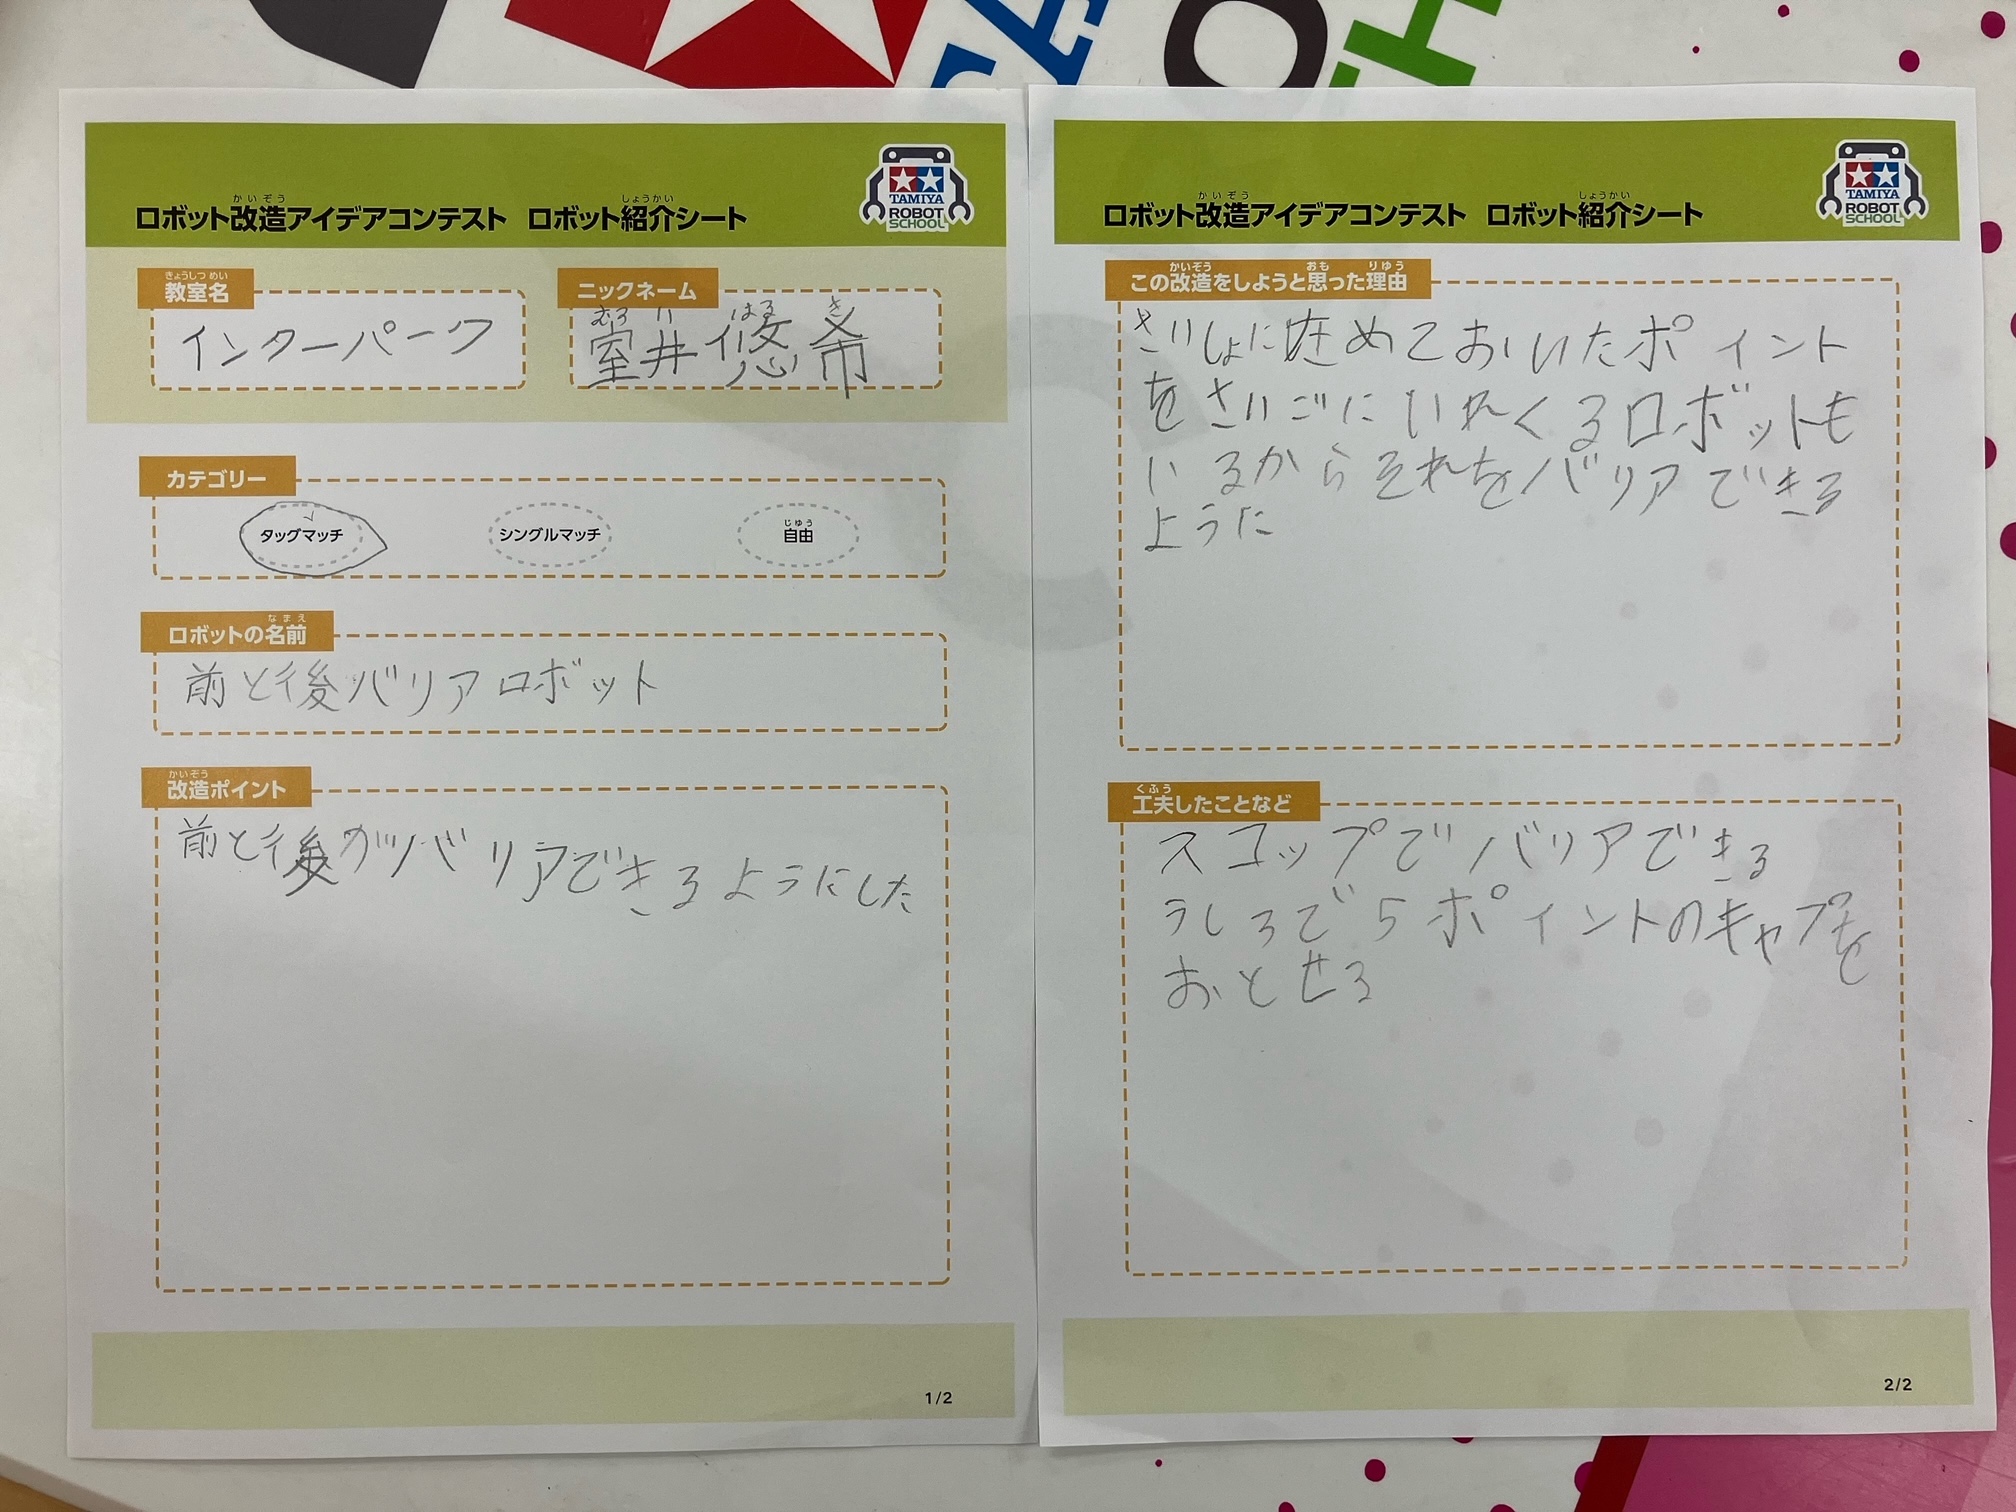 かいぞう しょうかい
ロボット改造アイデアコンテスト ロボット紹介シート
TAMIYA
ROBOT
SCHOOL
きょうしつ めい
教室名
インターパーク
ニックネーム
むろ い はる き
室井悠希
カテゴリー
タッグマッチ
シングルマッチ
じゆう
自由
なまえ
ロボットの名前
前と後バリアロボット
かいぞう
改造ポイント
前と後がバリアできるようにした
1/2
かいぞう しょうかい
ロボット改造アイデアコンテスト ロボット紹介シート
TAMIYA
ROBOT
SCHOOL
かいぞう おも りゆう
この改造をしようと思った理由
さいしょに貯めておいたポイント
をさいごにいれくるロボットも
いるからそれをバリアできる
ように
くふう
工夫したことなど
スコップでバリアできる
うしろで5ポイントのキャプを
おとせる
2/2